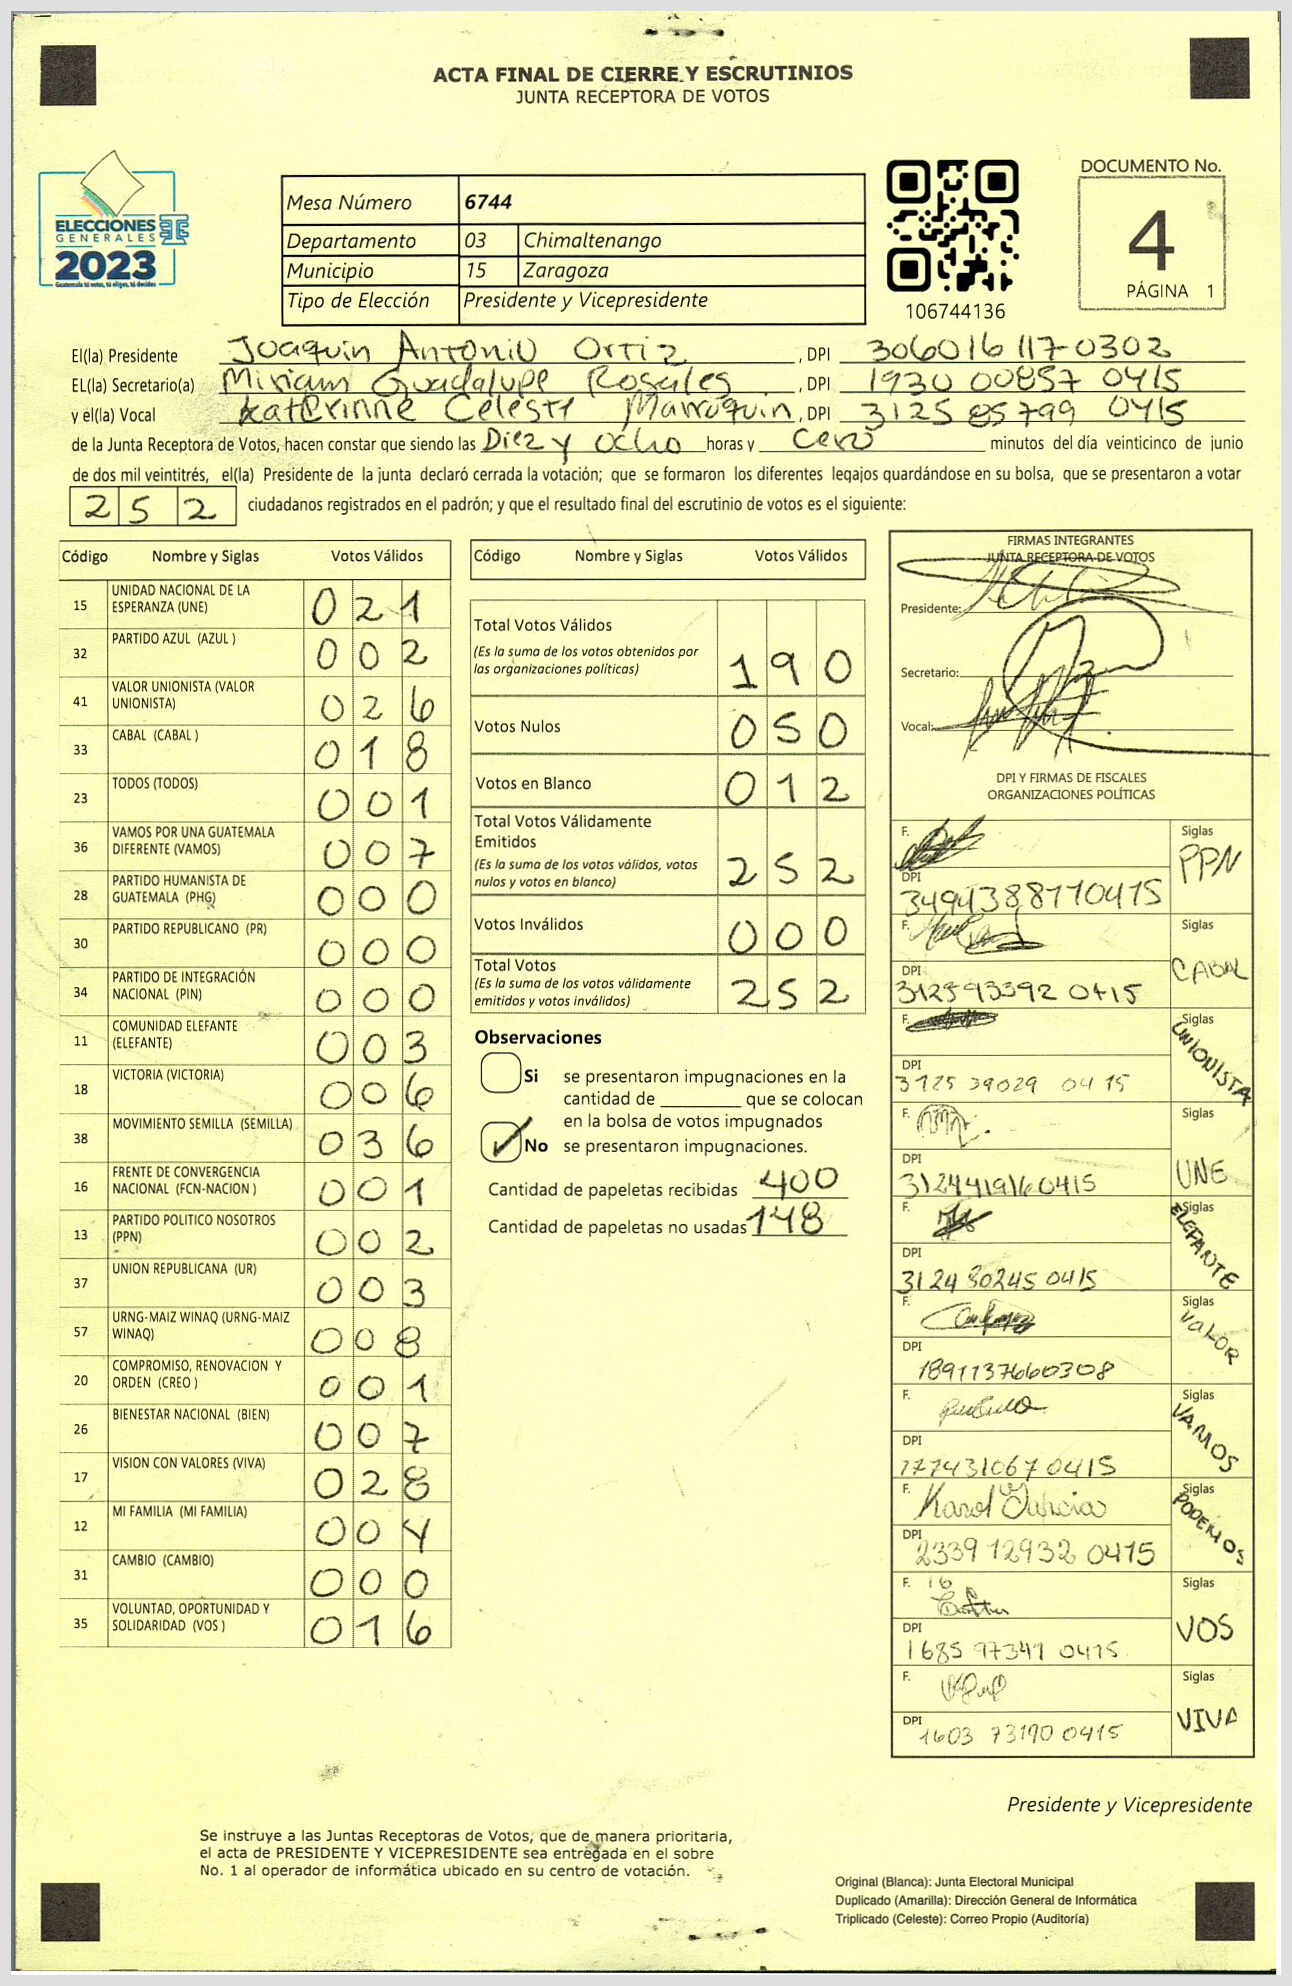 ACTA FINAL DE CIERRE Y ESCRUTINIOS
JUNTA RECEPTORA DE VOTOS
ELECCIONES
GENERALES
2023
Guatemala tú votas, tú eliges, tú decides
Mesa Número 6744
Departamento 03 Chimaltenango
Municipio 15 Zaragoza
Tipo de Elección Presidente y Vicepresidente
106744136
DOCUMENTO No.
4
PÁGINA 1
El(la) Presidente Joaquin Antonio Ortiz, DPI 306016117 0302
EL(la) Secretario(a) Miriam Guadalupe Rosales, DPI 1930 00857 0415
y el(la) Vocal Katerinne Celeste Marroquin, DPI 3125 85799 0415
de la Junta Receptora de Votos, hacen constar que siendo las Diez y ocho horas y cero minutos del día veinticinco de junio
de dos mil veintitrés, el(la) Presidente de la junta declaró cerrada la votación; que se formaron los diferentes legajos guardándose en su bolsa, que se presentaron a votar
252 ciudadanos registrados en el padrón; y que el resultado final del escrutinio de votos es el siguiente:
Código Nombre y Siglas Votos Válidos
15 UNIDAD NACIONAL DE LA ESPERANZA (UNE) 021
32 PARTIDO AZUL (AZUL ) 002
41 VALOR UNIONISTA (VALOR UNIONISTA) 026
33 CABAL (CABAL ) 018
23 TODOS (TODOS) 001
36 VAMOS POR UNA GUATEMALA DIFERENTE (VAMOS) 007
28 PARTIDO HUMANISTA DE GUATEMALA (PHG) 000
30 PARTIDO REPUBLICANO (PR) 000
34 PARTIDO DE INTEGRACIÓN NACIONAL (PIN) 000
11 COMUNIDAD ELEFANTE (ELEFANTE) 003
18 VICTORIA (VICTORIA) 006
38 MOVIMIENTO SEMILLA (SEMILLA) 036
16 FRENTE DE CONVERGENCIA NACIONAL (FCN-NACION ) 001
13 PARTIDO POLITICO NOSOTROS (PPN) 002
37 UNION REPUBLICANA (UR) 003
57 URNG-MAIZ WINAQ (URNG-MAIZ WINAQ) 008
20 COMPROMISO, RENOVACION Y ORDEN (CREO ) 001
26 BIENESTAR NACIONAL (BIEN) 007
17 VISION CON VALORES (VIVA) 028
12 MI FAMILIA (MI FAMILIA) 004
31 CAMBIO (CAMBIO) 000
35 VOLUNTAD, OPORTUNIDAD Y SOLIDARIDAD (VOS ) 016
Código Nombre y Siglas Votos Válidos
Total Votos Válidos
(Es la suma de los votos obtenidos por
las organizaciones políticas) 190
Votos Nulos 050
Votos en Blanco 012
Total Votos Válidamente
Emitidos
(Es la suma de los votos válidos, votos
nulos y votos en blanco) 252
Votos Inválidos 000
Total Votos
(Es la suma de los votos válidamente
emitidos y votos inválidos) 252
Observaciones
Si se presentaron impugnaciones en la
cantidad de ________ que se colocan
en la bolsa de votos impugnados
No se presentaron impugnaciones.
Cantidad de papeletas recibidas 400
Cantidad de papeletas no usadas 148
FIRMAS INTEGRANTES
JUNTA RECEPTORA DE VOTOS
Presidente:
Secretario:
Vocal:
DPI Y FIRMAS DE FISCALES
ORGANIZACIONES POLÍTICAS
F. Siglas PPN
DPI 3494388770415
F. Siglas CABAL
DPI 312593392 0415
F. Siglas UNIONISTA
DPI 3125 39029 0415
F. Siglas UNE
DPI 3124419160415
F. Siglas ELEFANTE
DPI 3124 30245 0415
F. Siglas VALOR
DPI 1891137660308
F. Siglas VAMOS
DPI 177431067 0415
F. Karol Garcia Siglas PODEMOS
DPI 2339 12932 0415
F. Siglas VOS
DPI 1685 97341 0415
F. Siglas VIVA
DPI 1603 73190 0415
Presidente y Vicepresidente
Se instruye a las Juntas Receptoras de Votos, que de manera prioritaria,
el acta de PRESIDENTE Y VICEPRESIDENTE sea entregada en el sobre
No. 1 al operador de informática ubicado en su centro de votación.
Original (Blanca): Junta Electoral Municipal
Duplicado (Amarilla): Dirección General de Informática
Triplicado (Celeste): Correo Propio (Auditoría)